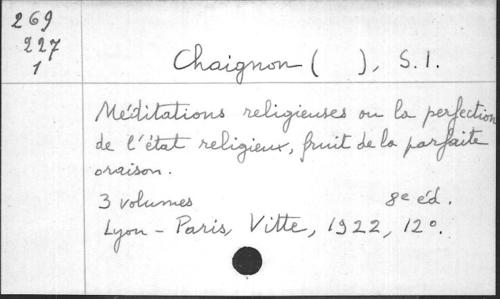 269
227
1
Chaignon ( ), S.I.
Méditations religieuses ou la perfection
de l'état religieux, fruit de la parfaite
oraison.
3 volumes 8e éd.
Lyon - Paris, Vitte, 1922, 12°.